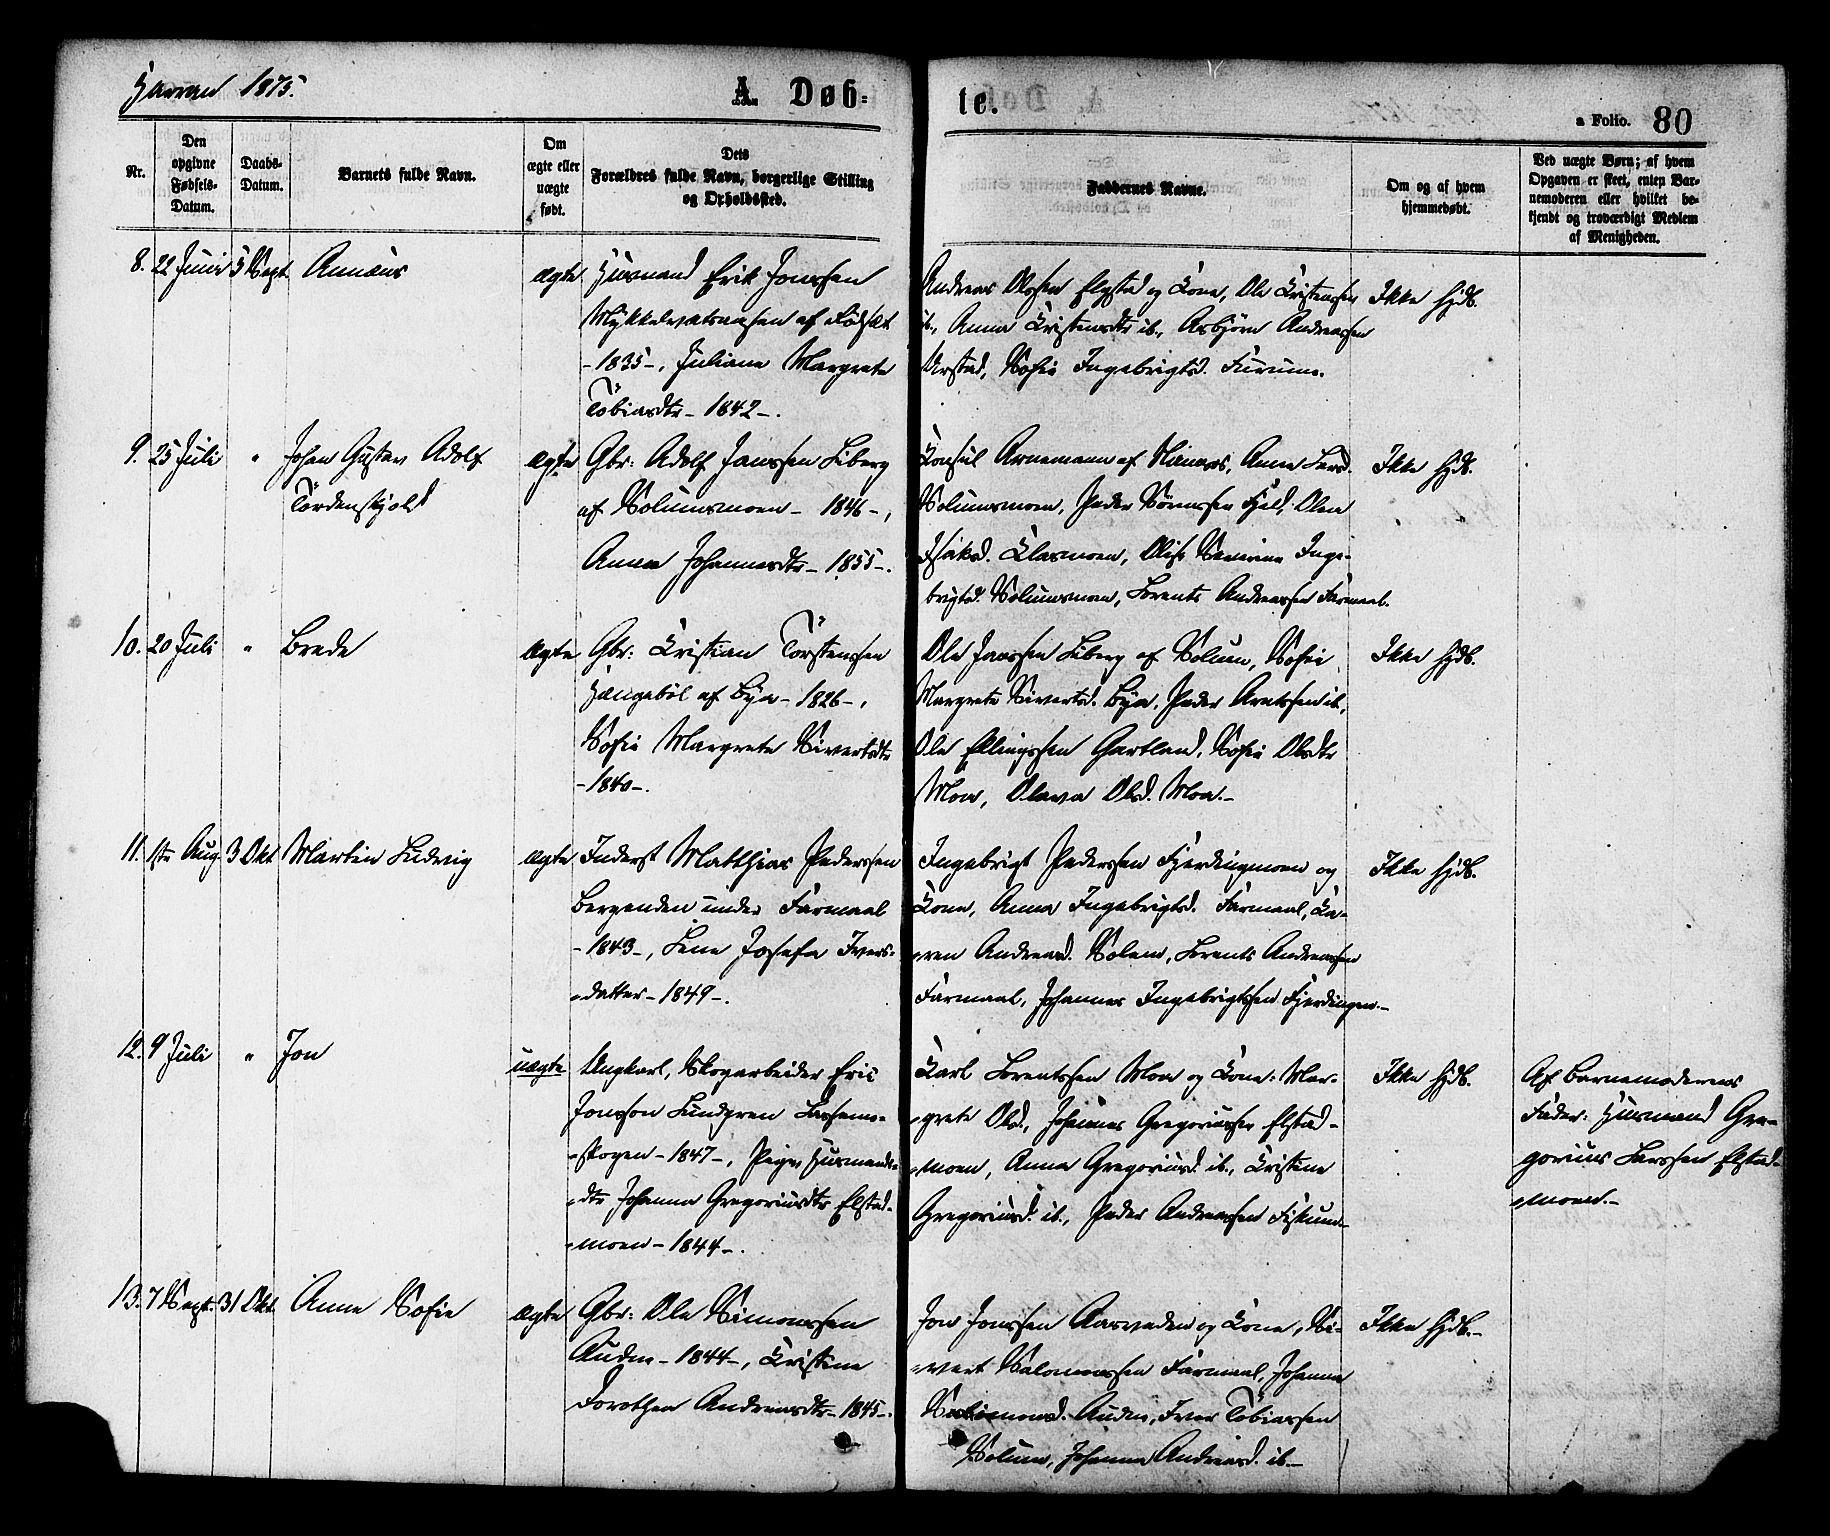 Harran 1875.
A. Døb-
te.
a Folio. 80
Nr.
Den
opgivne
Fødsels-
Datum.
Daabs-
Datum.
Barnets fulde Navn.
Om
ægte eller
uægte
født.
Dets
Forældres fulde Navn, borgerlige Stilling
og Opholdssted.
Faddernes Navne.
Om og af hvem
hjemmedøbt.
Ved uægte Børn; af hvem
Opgaven er skeet, enten Bar-
nemoderen eller hvilket be-
kjendt og troværdigt Medlem
af Menigheden.
8. 22 Juni 5 Sept. Annæus
ægte
Husmand Erik Jonssen
Mykkelvatsaasen af
- 1835 -, Juliane Margrete
Tobiasdtr - 1842 -.
Andreas Olssen Elstad og Kone, Ole Kristenssen
ib., Anna Kristensdtr ib., Asbjørn Andreassen
Urstad, Sofie Ingebrigtsd. Furumo.
Ikke hjdb.
9. 25 Juli " Johan Gustav Adolf
Tordenskjold
ægte
Gbr: Adolf Janssen Liberg
af Solumsmoen - 1846 -,
Anna Johannesdtr - 1855 -.
Konsul Arnemann af Namsos, Anne Larsd.
Solumsmoen, Peder Sørenssen Fjeld, Olea
Isaksd. Klasmoen, Olise Severine Inge-
brigtsd. Solumsmoen, Lorents Andreassen Farmaal.
Ikke hjdb.
10. 20 Juli " Brede
ægte
Gbr: Kristian Torstenssen
Hængebøl af Bya - 1826 -,
Sofie Margrete Sivertsdtr
- 1840 -.
Ole Janssen Liberg af Solum, Sofie
Margrete Sivertsd. Bya, Peder Arntssen ib.,
Ole Ellingssen Gartland, Sofie Olsdtr
Moa, Olava Olsd. Moa.-
Ikke hjdb.
11. 1ste Aug. 3 Okt. Martin Ludvig
ægte
Inderst Matthias Pederssen
Bergenden under Farmaal
- 1843 -, Lene Josefa Ivers-
datter - 1849 -.
Ingebrigt Pederssen Fjerdingmoen og
Kone, Anna Ingebrigtsd. Farmaal, Ka-
ren Andreasd. Solem, Lorents Andreassen
Farmaal, Johannes Ingebrigtssen Fjerdingen.-
Ikke hjdb.
12. 9 Juli " Jon
uægte
Ungkarl, Skogarbeider Eric
Jonsson Lundgren Lassemo-
skogen - 1847 -, Pige, Husmands-
dtr Johanna Gregoriusdtr Elstad-
moen - 1844 -.
Karl Lorentssen Moa og Kone: Mar-
grete Olsd., Johannes Gregoriussen Elstad-
moen, Anna Gregoriusd. ib., Kristine
Gregoriusd. ib., Peder Andreassen Fiskum-
Ikke hjdb.
Af Barnemoderens
Fader: Husmand Gre-
gorius Larssen Elstad-
moen.-
13. 7 Sept. 31 Okt. Anne Sofie
ægte
Gbr: Ole Simonssen
Audm - 1844 -, Kristine
Dorothea Andreasdtr - 1845 -.
Jon Jonssen Aasvaden og Kone, Si-
vert Salomonssen Farmaal, Johanna
Simonsd. Audm, Iver Tobiassen
Solum, Johanna Andreasd. ib.-
Ikke hjdb.-